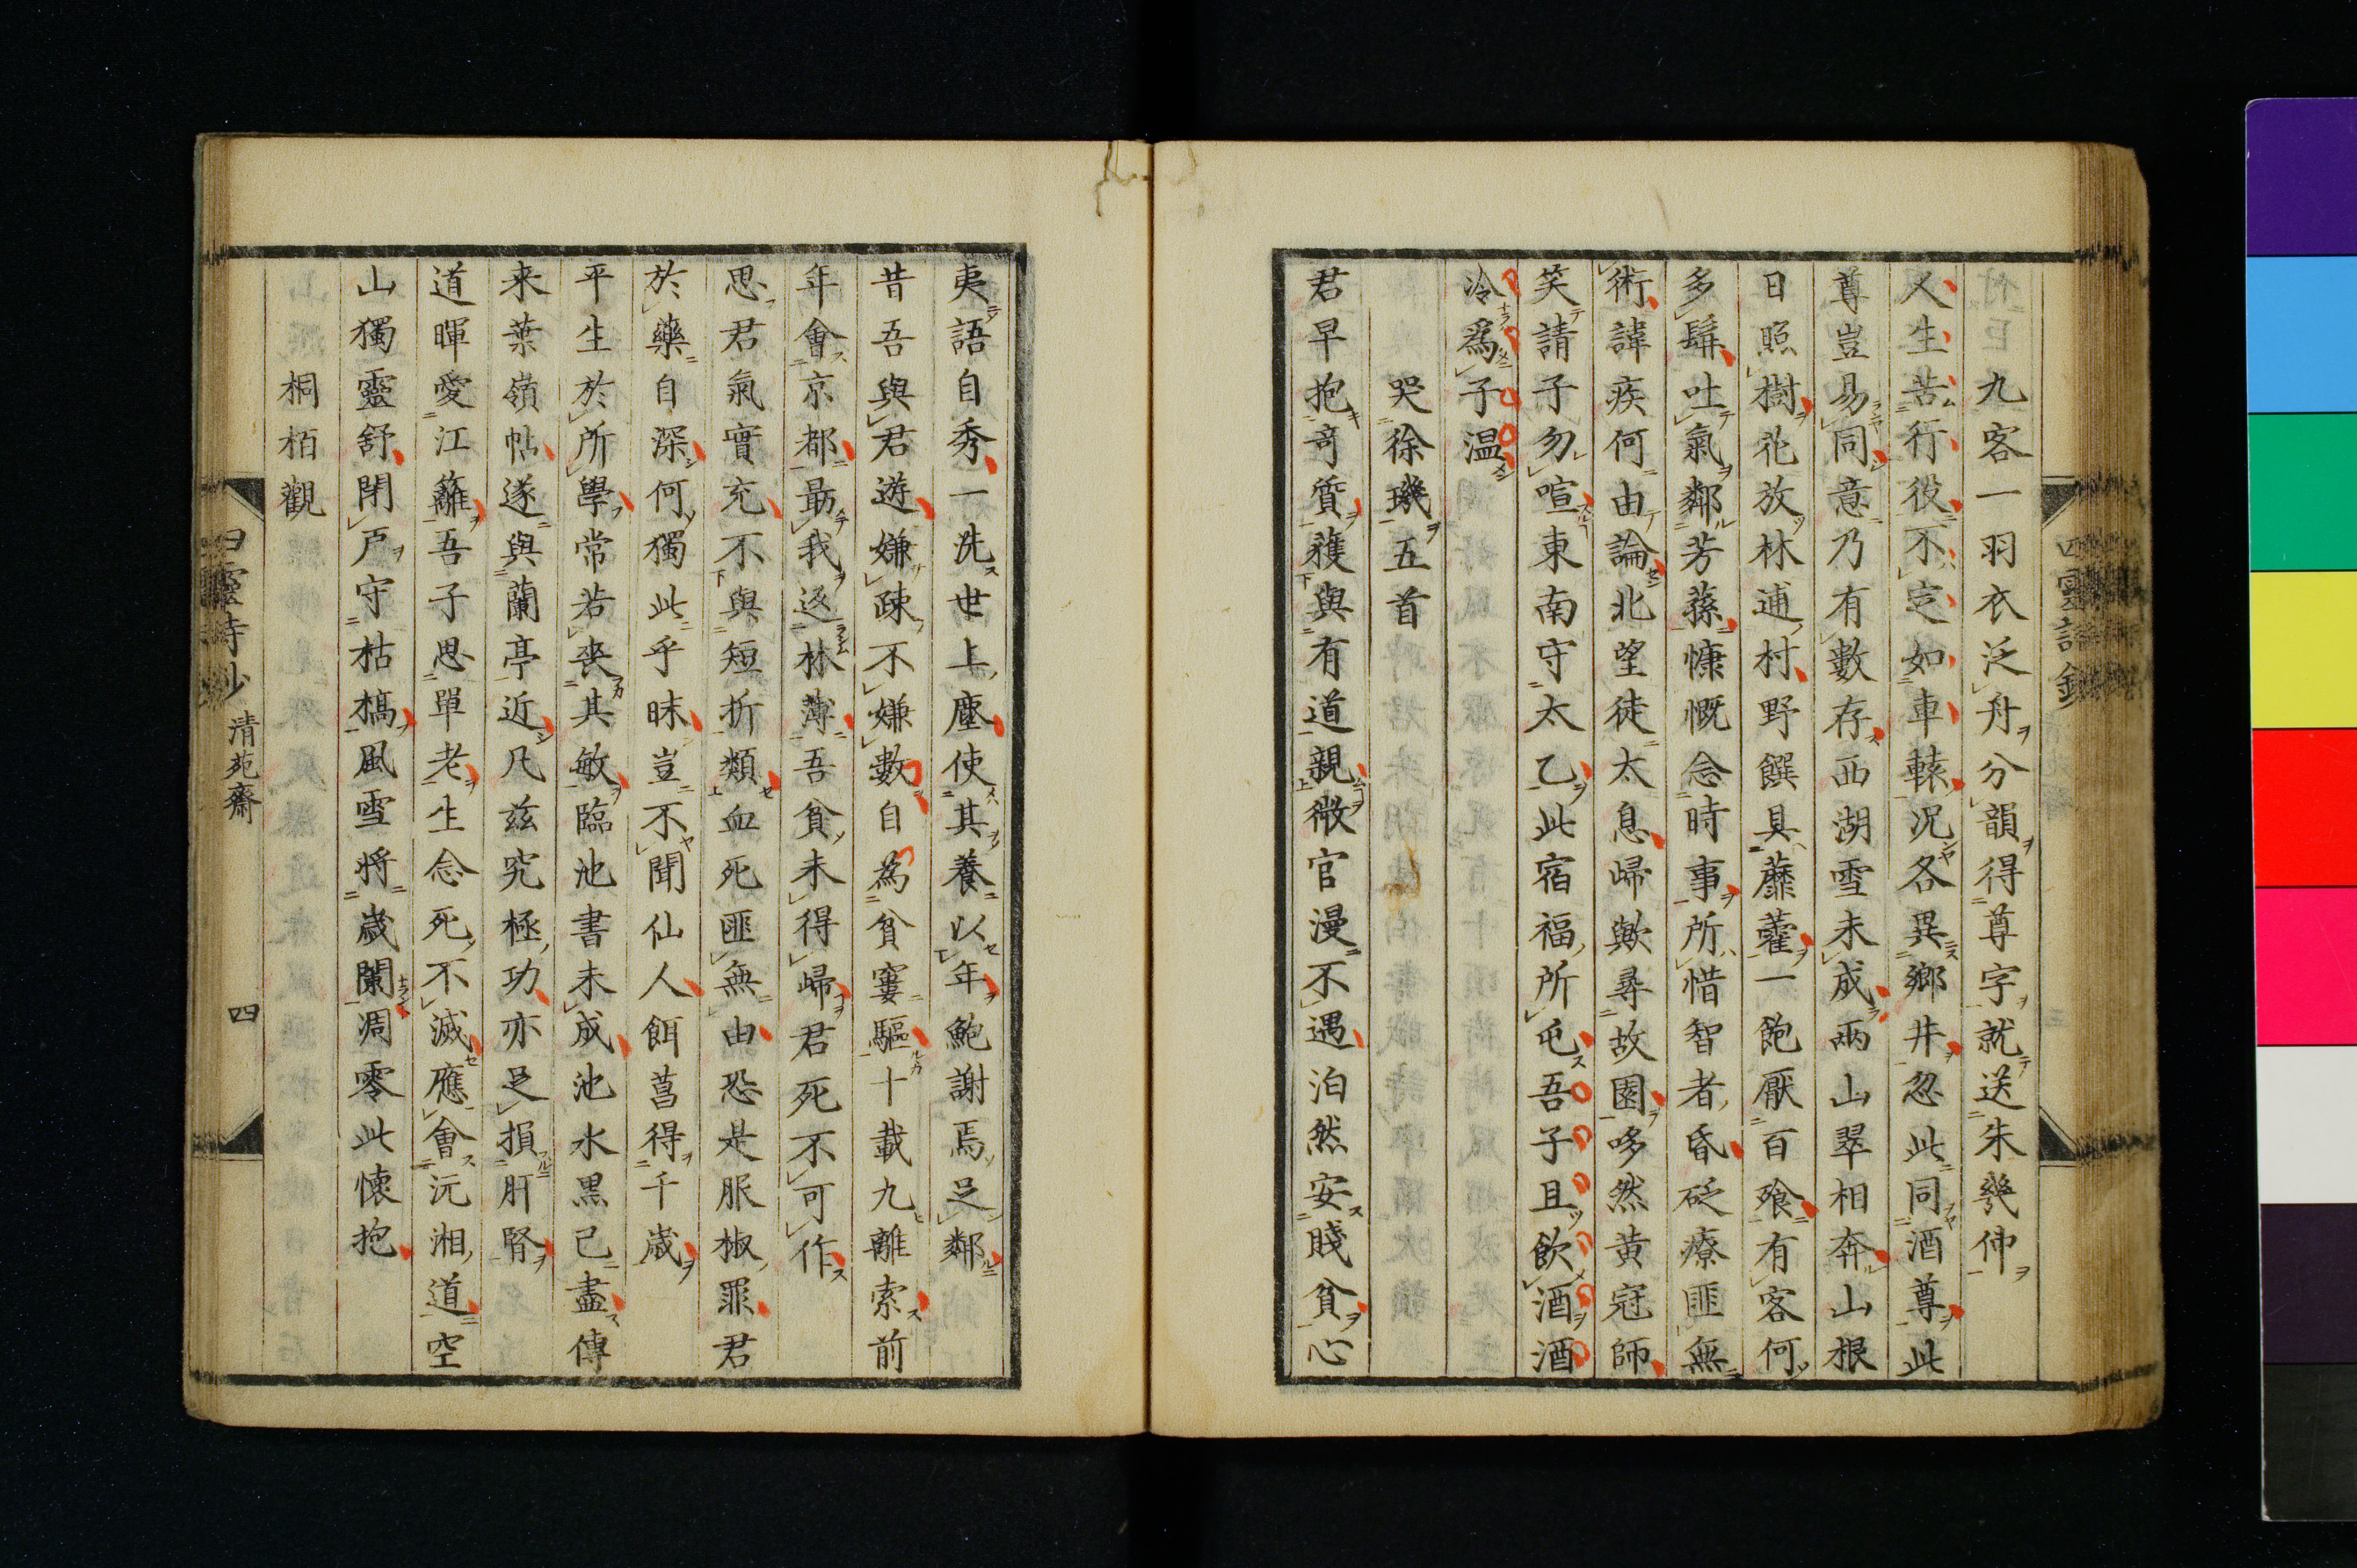 九客一羽衣泛舟分韻得尊字就送朱幾仲
人生苦行役不定如車轅况各異鄉井忍此同酒尊此
尊豈易同意乃有數存西湖雪未成兩山翠相奔山根
日照樹花放林逋村野饌具藜藿一飽厭百飱有客何
多髯吐氣鄰芳蓀慷慨念時事所惜智者昏砭療匪無
術諱疾何由論北望徒太息歸歟尋故園哆然黄冠師
笑請子勿喧東南守太乙此宿福所屯吾子且飲酒酒
冷為子温
哭徐璣五首
君早抱奇質穫與有道親微官漫不遇泊然安賤貧心
夷語自秀一洗世上塵使其養以年鮑謝焉足鄰
昔吾與君遊嫌疎不嫌數自為貧窶驅十載九離索前
年會京都最我返林薄吾貧未得歸君死不可作
思君氣實充不與短折類血死匪無由恐是服椒罪君
於藥自深何獨此乎昧豈不聞仙人餌菖得千歲
平生於所學常若喪其敏臨池書未成池水黑已盡傳
来葉嶺帖遂與蘭亭近凡兹究極功亦足損肝腎
道暉愛江籬吾子思單老生念死不滅應會沅湘道空
山獨靈舒閉戸守枯槁風雪將歲闌凋零此懷抱
桐栢觀
四靈詩鈔
清苑齋
四